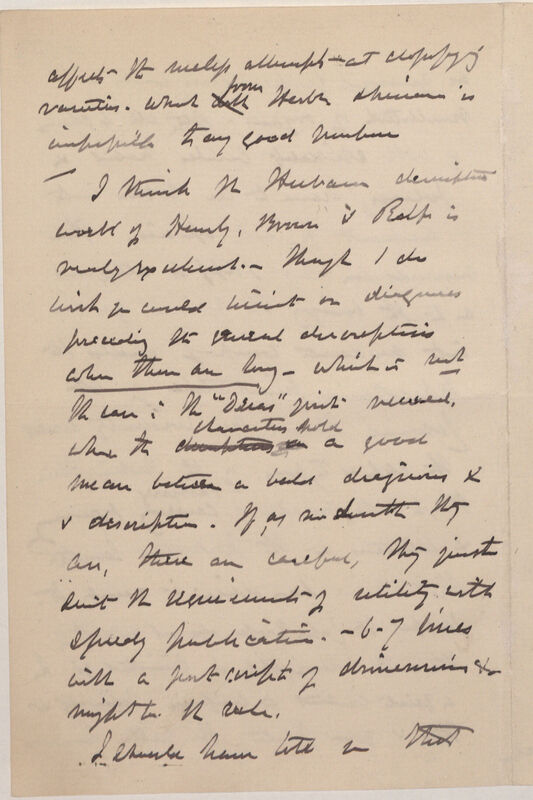 affects the useless attempts at classifying
varieties. which from Herbm specimens is
impossible to any good purpose
I think the Herbarium descriptive
work of Hemsly, Brown & Rolfe is
really excellent. - Though I do
wish you could insist on diagnoses
preceding the general descriptions
when these are long - which is not
the case in the "Decas" just received,
where the characters hold a good
mean between a bald diagnosis &
a description. If, as no doubt they
are, these are careful, they just
suit the requirements of utility with
speedy publication. - 6-7 lines
with a postscript of dimensions &c
might be the rule.
I should have told you that